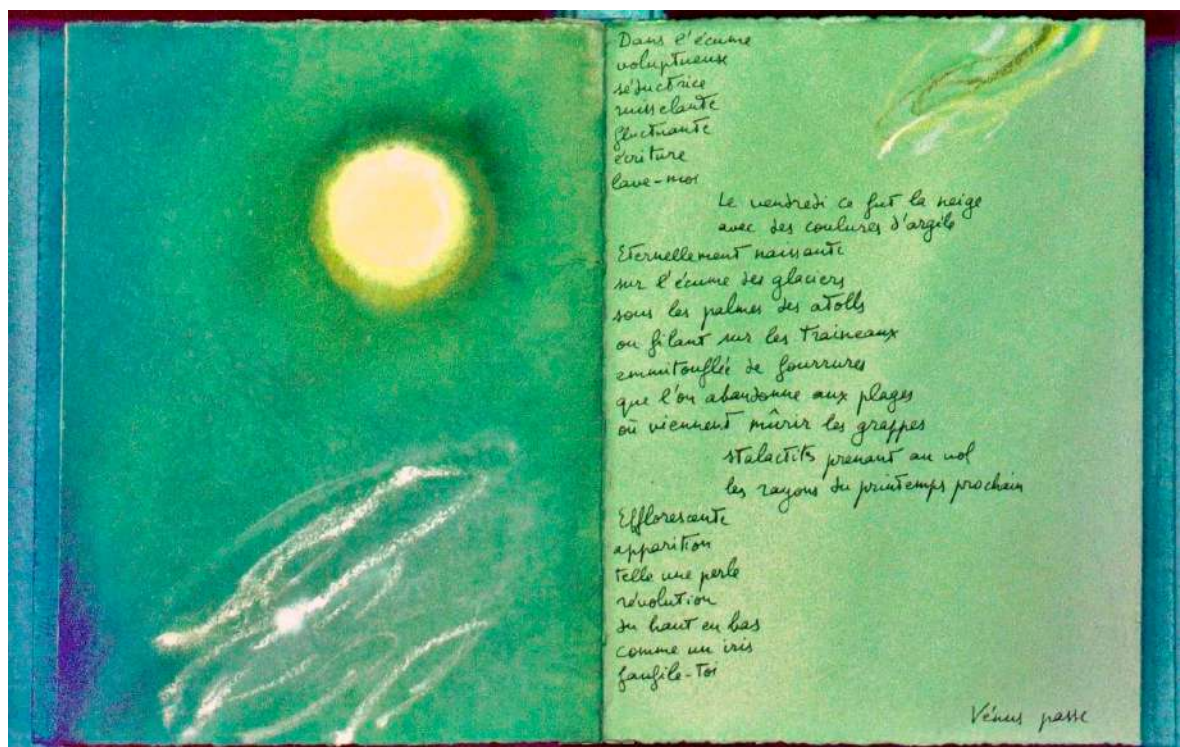 Dans l'écume
voluptueuse
séductrice
ruisselante
fluctuante
écriture
lave-moi
Le vendredi ce fut la neige
avec des coulures d'argile
Eternellement naissante
sur l'écume des glaciers
sous les palmes des atolls
ou filant sur les traineaux
emmitouflée de fourrures
que l'on abandonne aux plages
où viennent mûrir les grappes
stalactites prenant au vol
les rayons du printemps prochain
Efflorescente
apparition
telle une perle
révolution
du haut en bas
comme un iris
faufile-toi
Vénus passe